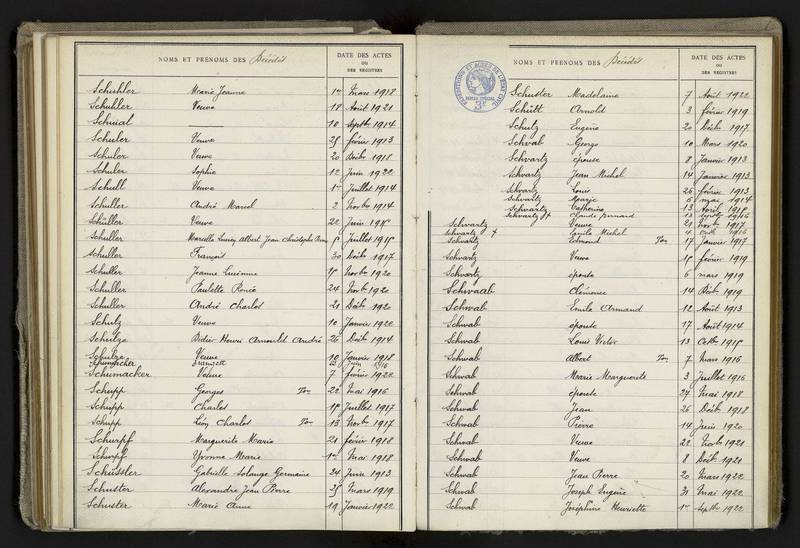 NOMS ET PRÉNOMS DES Décédés
DATE DES ACTES
OU
DES REGISTRES
Schuhler Marie Jeanne 1er Mars 1918
Schuhler Veuve 18 Août 1921
Schuial — 10 Septbre 1914
Schuler Veuve 25 février 1913
Schuler Veuve 20 Décbre 1918
Schuler Sophie 12 Juin 1922
Schull Veuve 1er Juillet 1914
Schuller André Marcel 2 Novbre 1914
Schüller Veuve 22 Juin
Schuller Marcelle Albert Jean Christophe Juillet
Schuller François 30 Décbre 1917
Schuller Jeanne Lucienne Novbre 1920
Schuller Paulette Renée 24 Novbre 1920
Schuller André Charles 21 Décbre 1920
Schulz Veuve 10 Janvier 1922
Schulze Didier Henri Arnould André 26 Décbre 1914
Schulze Veuve 10 Janvier 1918
Schumacker 1916
Schumacker Veuve 7 février 1922
Schupp Georges 22 Mai 1916
Schupp Charles Juillet 1917
Schupp Léon Charles 13 Novbre 1917
Schurpf Marguerite Marie 21 février 1918
Schurpf Yvonne Marie 1er Mai 1918
Schussler Gabrielle Solange Germaine 24 Juin 1913
Schuster Alexandre Jean Pierre 25 Mars 1919
Schuster Marie Anne 19 Janvier 1922
NOMS ET PRÉNOMS DES Décédés
DATE DES ACTES
OU
DES REGISTRES
Schuster Madelaine 7 Août 1922
Schütt Arnold 3 février 1919
Schutz Eugène 20 Décbre 1917
Schwab George 10 Mars 1920
Schvartz épouse 8 Janvier 1913
Schvartz Jean Michel 14 Janvier 1913
Schvartz Louis 26 février 1913
Schvartz Marie 6 mai 1914
Schvartz Catherine 13 Août
Schvartz Claude Fernand 13 Septbre 1916
Schvartz Veuve 21 Novbre 1917
Schvartz Emile Michel 4 1916
Schvartz Edmond 17 Janvier 1917
Schvartz Veuve février 1919
Schvartz épouse 6 mars 1919
Schwaab Clémence 14 Décbre 1919
Schwab Emile Armand 12 Août 1913
Schwab épouse 17 Août 1914
Schwab Louis Victor 13 Octbre
Schwab Albert 7 Mars 1916
Schwab Marie Marguerite 3 Juillet 1916
Schwab épouse 27 Mai 1918
Schwab Jean 26 Décbre 1918
Schwab Pierre 14 Juin 1920
Schwab Veuve 22 Novbre 1921
Schwab Veuve 8 Décbre 1921
Schwab Jean Pierre 20 Mars 1922
Schwab Joseph Eugène 31 Mai 1922
Schwab Joséphine Henriette 1er Septbre 1922